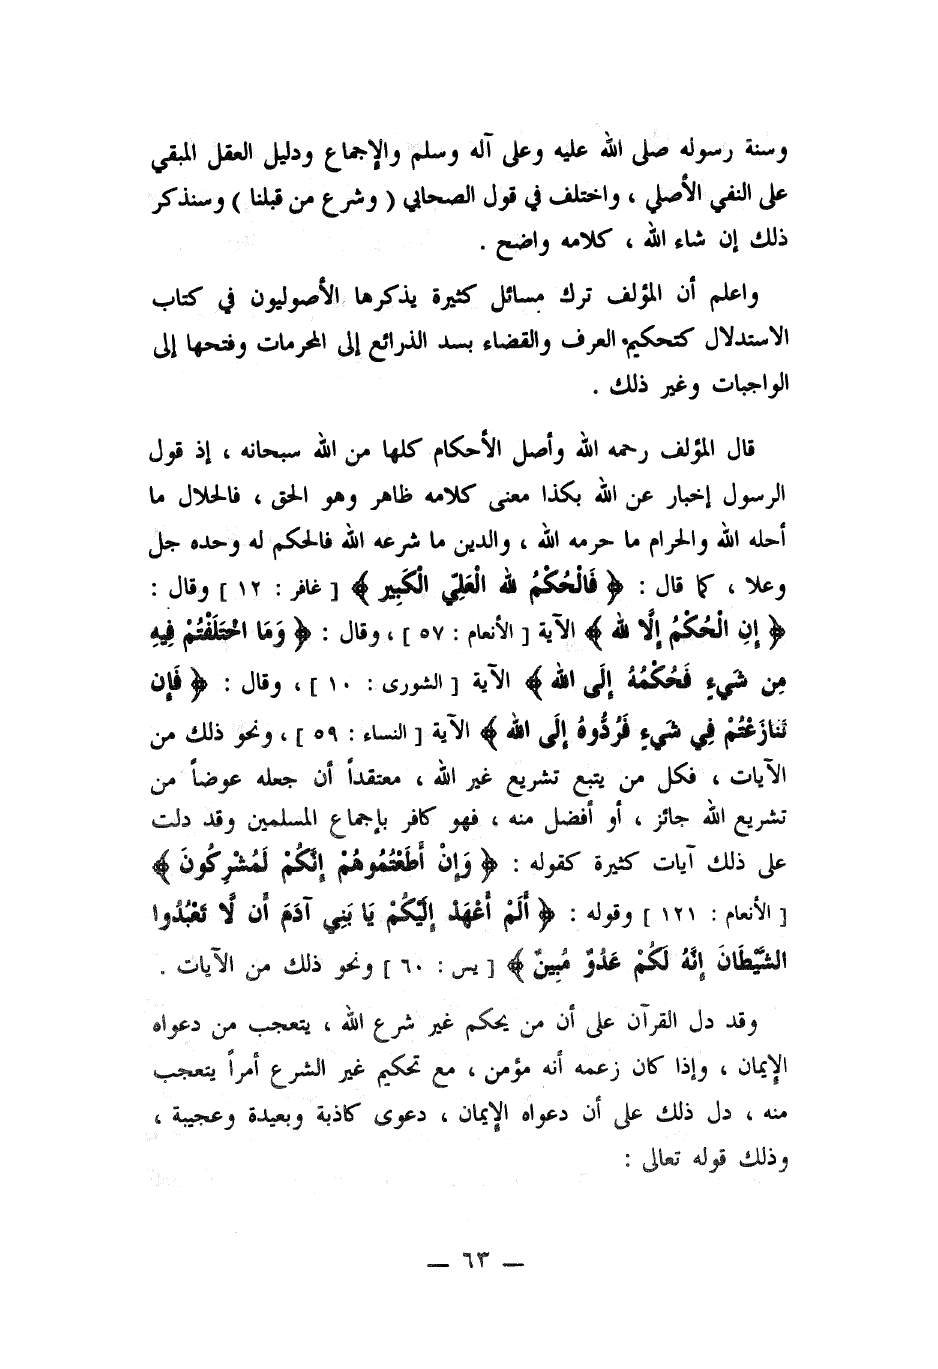 وسنة رسوله صلى الله عليه وعلى آله وسلم والإجماع ودليل العقل المبقي
على النفي الأصلي ، واختلف في قول الصحابي ( وشرع من قبلنا ) وسنذكر
ذلك إن شاء الله ، كلامه واضح .
واعلم أن المؤلف ترك مسائل كثيرة يذكرها الأصوليون في كتاب
الاستدلال كتحكيم العرف والقضاء بسد الذرائع إلى المحرمات وفتحها إلى
الواجبات وغير ذلك .
قال المؤلف رحمه الله وأصل الأحكام كلها من الله سبحانه ، إذ قول
الرسول إخبار عن الله بكذا معنى كلامه ظاهر وهو الحق ، فالحلال ما
أحله الله والحرام ما حرمه الله ، والدين ما شرعه الله فالحكم له وحده جل
وعلا ، كما قال : ﴿ فَالْحُكْمُ لله الْعَلِيِّ الْكَبِير ﴾ [ غافر : ١٢ ] وقال :
﴿ إِنِ الْحُكْمُ إِلَّا لله ﴾ الآية [ الأنعام : ٥٧ ] ، وقال : ﴿ وَمَا اخْتَلَفْتُمْ فِيهِ
مِن شَيءٍ فَحُكْمُهُ إِلَى الله ﴾ الآية [ الشورى : ١٠ ] ، وقال : ﴿ فَإِن
تَنازَعْتُمْ فِي شَيءٍ فَرُدُّوهُ إِلَى الله ﴾ الآية [ النساء : ٥٩ ] ، ونحو ذلك من
الآيات ، فكل من يتبع تشريع غير الله ، معتقداً أن جعله عوضاً من
تشريع الله جائز ، أو أفضل منه ، فهو كافر بإجماع المسلمين وقد دلت
على ذلك آيات كثيرة كقوله : ﴿ وَإِنْ أَطَعْتُمُوهُمْ إِنَّكُمْ لَمُشْرِكُونَ ﴾
[ الأنعام : ١٢١ ] وقوله : ﴿ أَلَمْ أَعْهَدْ إِلَيْكُمْ يَا بَنِي آدَمَ أَن لَّا تَعْبُدُوا
الشَّيْطَانَ إِنَّهُ لَكُمْ عَدُوٌّ مُبِينٌ ﴾ [ يس : ٦٠ ] ونحو ذلك من الآيات .
وقد دل القرآن على أن من يحكم غير شرع الله ، يتعجب من دعواه
الإيمان ، وإذا كان زعمه أنه مؤمن ، مع تحكيم غير الشرع أمراً يتعجب
منه ، دل ذلك على أن دعواه الإيمان ، دعوى كاذبة وبعيدة وعجيبة ،
وذلك قوله تعالى :
— ٦٣ —